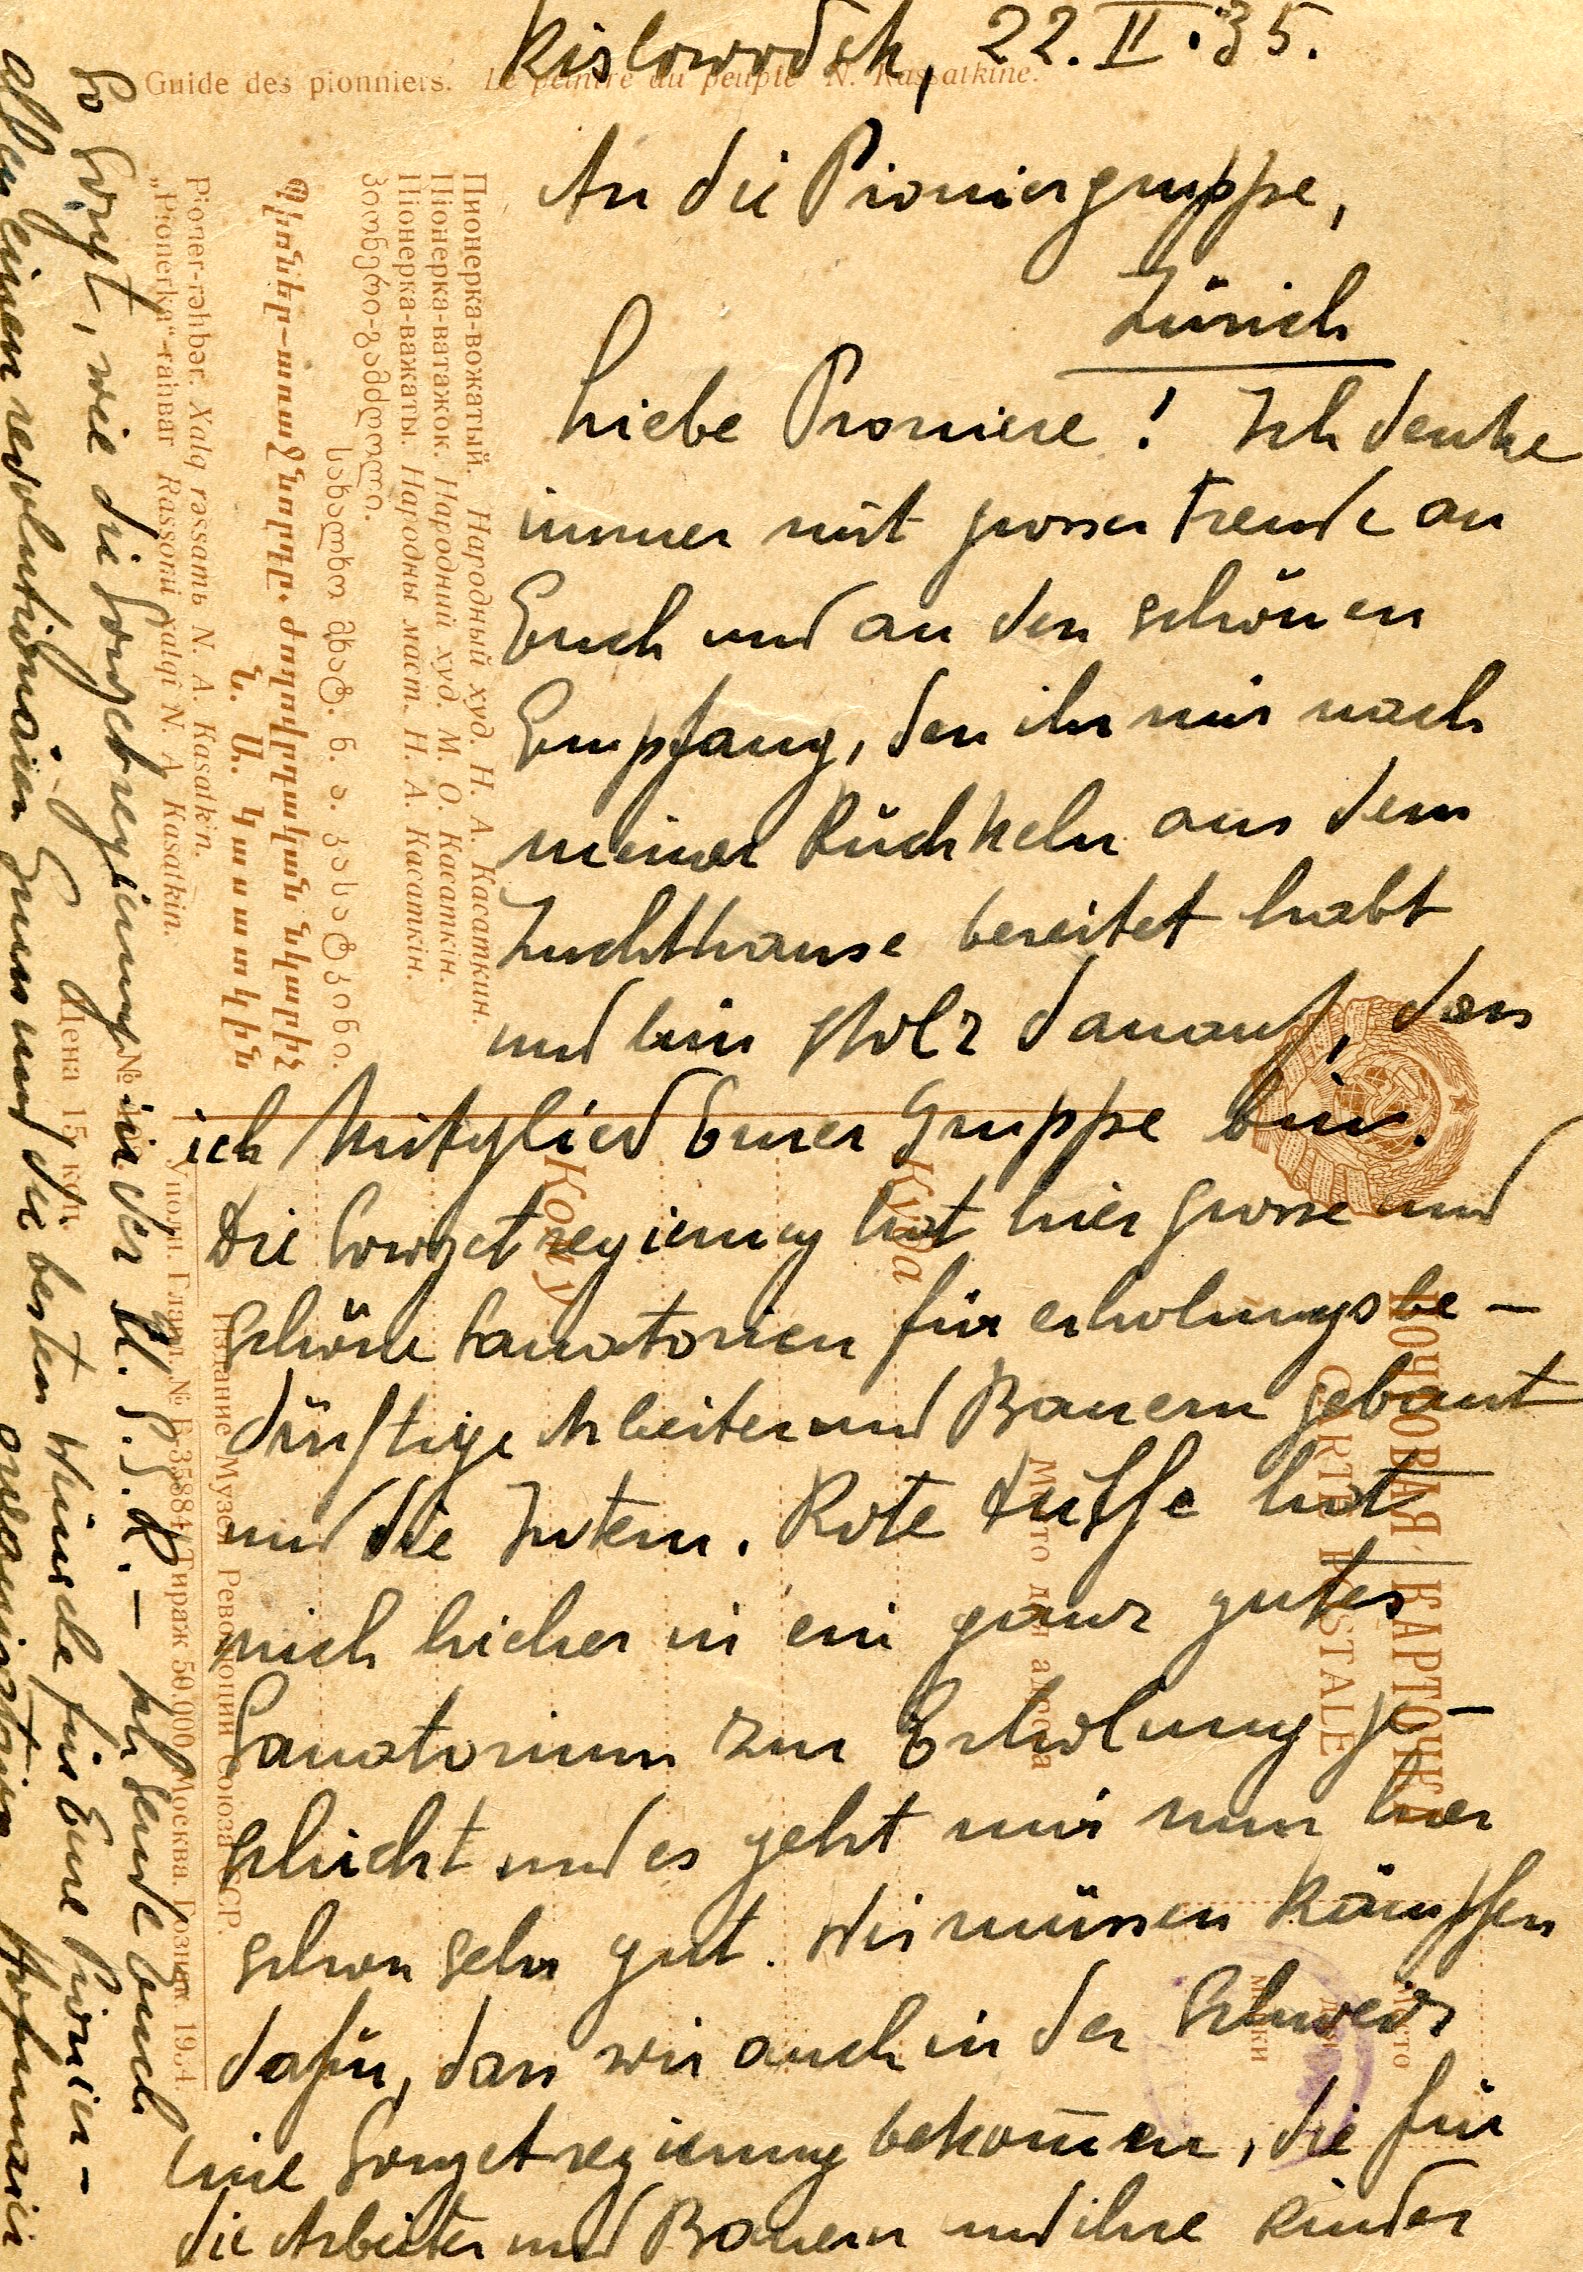 Kislowodsk, 22. II. 35.
An die Pioniergruppe,
Zürich
Liebe Pioniere! Ich denke
immer mit grosser Freude an
Euch und an den schönen
Empfang, den ihr mir nach
meiner Rückkehr aus dem
Zuchthause bereitet habt
und bin stolz darauf, dass
ich Mitglied Eurer Gruppe bin.
Die Sowjetregierung hat hier grosse und
schöne Sanatorien für erholungsbe-
dürftige Arbeiter und Bauern gebaut
und die Intern. Rote Hilfe hat
mich hieher in ein ganz gutes
Sanatorium zur Erholung ge-
schickt und es geht mir nun hier
schon sehr gut. Wir müssen kämpfen
dafür, dass wir auch in der Schweiz
eine Sowjetregierung bekommen, die für
die Arbeiter und Bauern und ihre Kinder
so sorgt, wie die Sowjetregierung in der U.S.S.R. – Ich sende Euch
allen einen revolutionären Gruss und die besten Wünsche für Eure Pionier-
organisation
Guide des pionniers. Le peintre du peuple N. Kassatkine.
Пионерка-вожатый. Народный худ. Н. А. Касаткин.
Піонерка-ватажок. Народний худ. М. О. Касаткін.
Піонерка-важаты. Народны маст. Н. А. Касаткін.
პიონერი-გამძღოლი.
სახალხო მხატ. ნ. ა. კასატკინი.
Պիոներ-առաջնորդը. Ժողովրդական նկարիչ
Ն. Ա. Կասատկին
Pioner-rəhbər. Xalq rəssamь N. A. Kasatkin.
„Pionerka“-rainвar Rassonii xalqi N. A. Kasatkin.
Цена 15 коп.
Уполн. Главл. № В-35884. Тираж 50.000. Москва. Гознак. 1934.
Издание Музея Революции Союза ССР.
ПОЧТОВАЯ КАРТОЧКА
CARTE POSTALE
Куда
Кому
Место для адреса
Место
для
марки